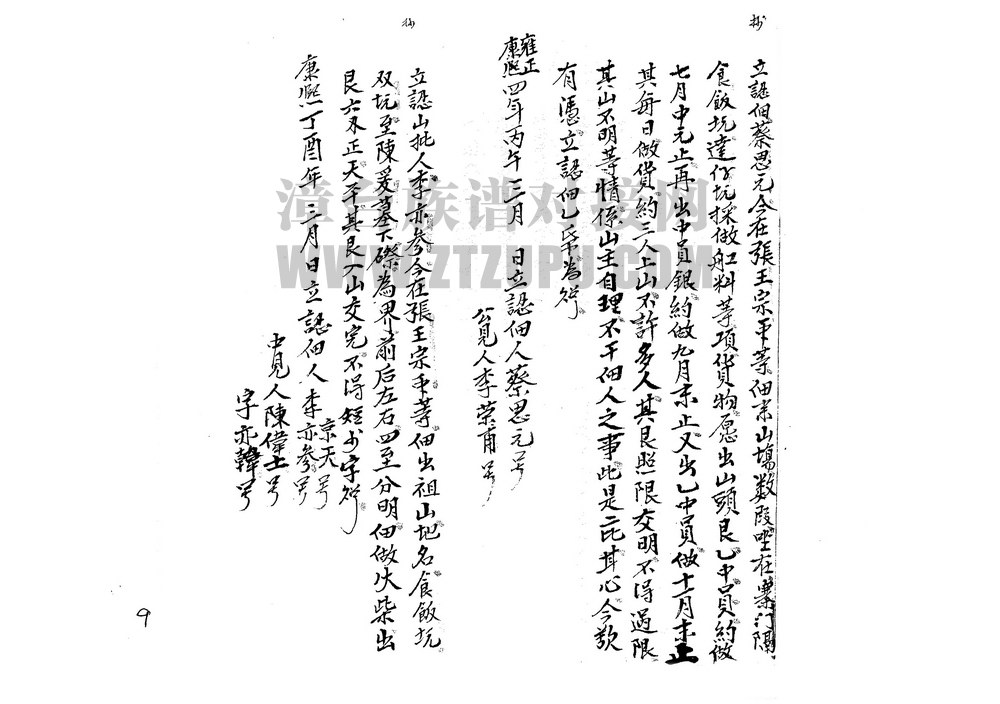 抄
立認佃蔡思元今在張王宗平等佃来山塲数叚坐在寨门隔
食飯坑達仔坑採做舡料等項貨物愿出山頭艮乙中員約做
七月中元止再出中員銀約做九月未止又出乙中員做十一月未止
其每日做貨約三人上山不許多人其艮照限交明不得過限
其山不明等情係山主自理不干佃人之事此是二比耳心今欲
有憑立認佃乙帋為炤
雍正
康熙四年丙午三月 日立認佃人蔡思元号
公見人李荣甫号
抄
立認山批人李亦参今在張王宗平等佃出祖山地名食飯坑
双坑至陳爰墓下磜為界前后左右四至分明佃做火柴出
艮六永正天平其艮入山交完不得短少字炤
康熙丁酉年三月日立認佃人李亦参号
京天号
中見人陳偉士号
字亦韓号
9
漳台族谱对接网
WWW.ZTZUPU.COM